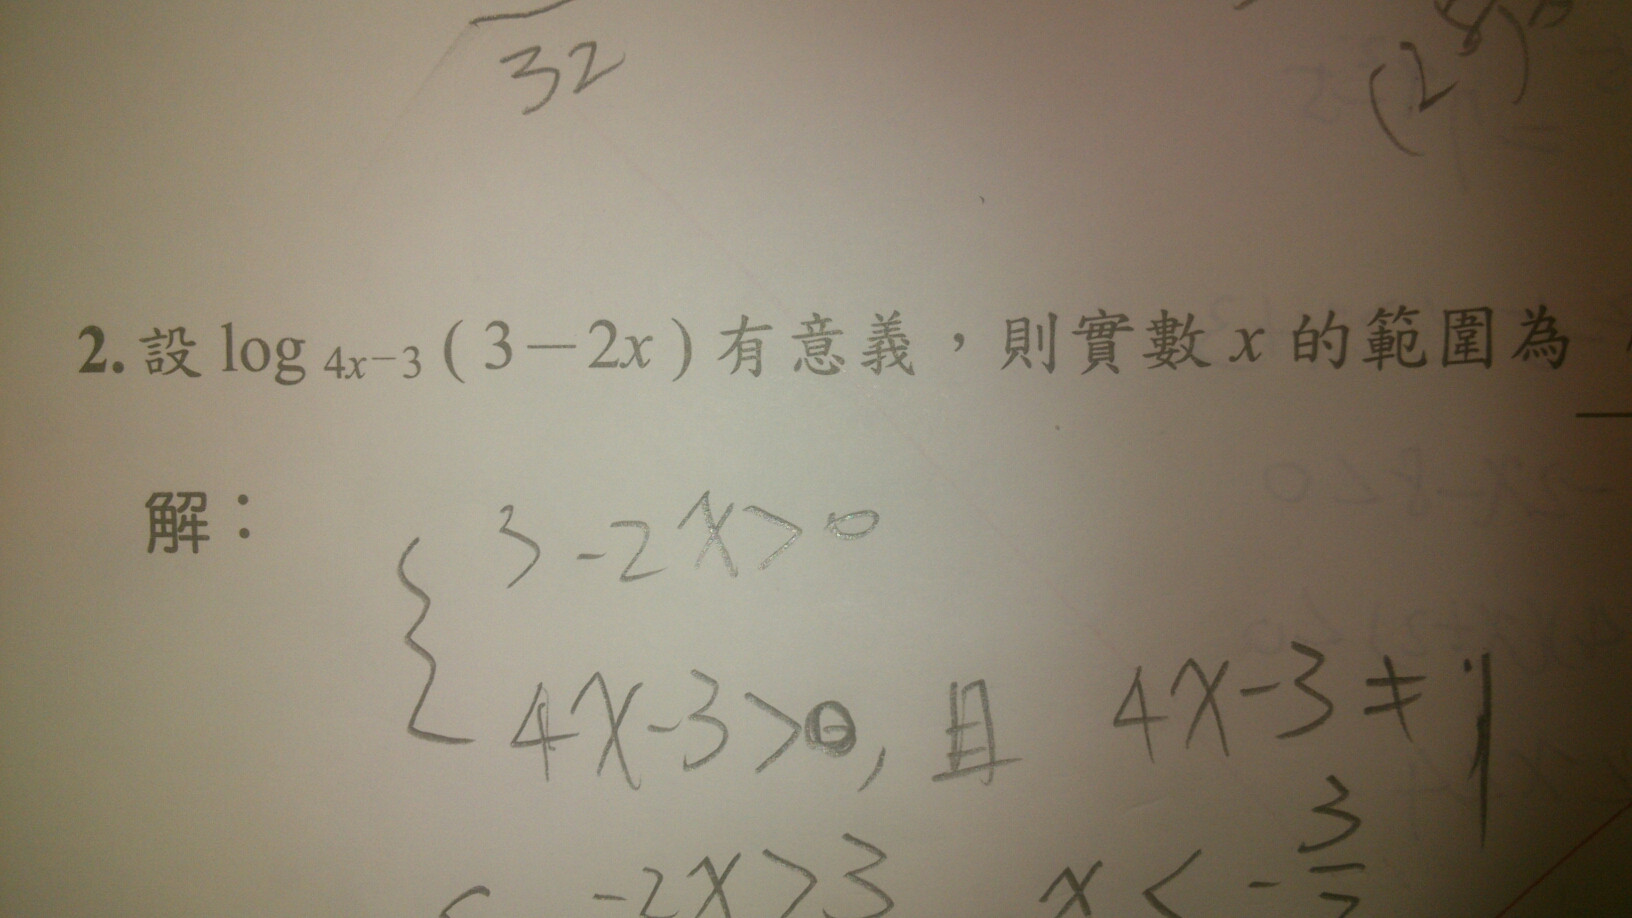 32
2. 設 log 4x−3 ( 3−2x ) 有意義，則實數 x 的範圍為
解：
3-2x>0
4x-3>0, 且 4x-3≠1
-2x>3 x<-3/2